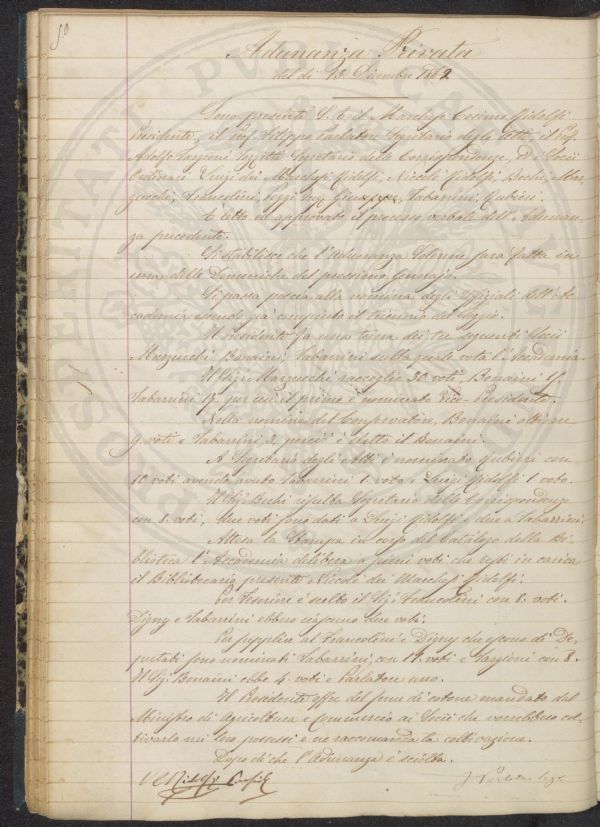 50
Adunanza Privata
del dì 13. Dicembre 1862
Sono presenti S. E. il Marchese Cosimo Ridolfi
Presidente, il Prof. Filippo Parlatore Segretario degli Atti, il Prof.
Adolfo Targioni Tozzetti Segretario delle Corrispondenze, ed i Socii
Ordinari Luigi dei Marchesi Ridolfi, Niccolò Ridolfi, Bechi, Mar-
zucchi, Francolini, Ing. Giuseppe, Tabarrini, Rubieri.
È letto ed approvato il processo verbale dell'Adunan-
za precedente.
Si stabilisce che l'Adunanza Solenne sarà fatta in
una delle Domeniche del prossimo Gennajo.
Si passa poscia alla nomina degli Uffiziali dell'Ac-
cademia essendo già compiuto il triennio del Seggio.
Il Presidente fa una terna dei tre seguenti Socii
Marzucchi, Bonaini, Tabarrini sulla quale vota l'Accademia.
Il Sig. Marzucchi raccoglie 30 voti, Bonaini
Tabarrini 17. per cui il primo è nominato Vice-Presidente.
Nella nomina del Conservatore, Bonaini ottiene
9. voti e Tabarrini 3. perciò è eletto il Bonaini.
A Segretario degli Atti è nominato Rubieri con
10 voti avendo avuto Tabarrini 1. voto e Luigi Ridolfi 1. voto.
Il Sig. Bechi risulta Segretario delle Corrispondenze
con 8. voti, due voti sono dati a Luigi Ridolfi e due a Tabarrini.
Attesa la Stampa in corso del Catalogo della Bi-
blioteca l'Accademia delibera a pieni voti che resti in carica
il Bibliotecario presente Niccolò dei Marchesi Ridolfi.
Per Tesoriere è scelto il Sig. Francolini con 8. voti.
Digny e Tabarrini ebbero ciascuno due voti.
Per supplire al Francolini e Digny che escono di De-
putati sono nominati Tabarrini, con 11. voti e Targioni con 8.
Il Sig. Bonaini ebbe 4. voti e Parlatore uno.
Il Presidente offre del seme di cotone mandato dal
Ministro di Agricoltura e Commercio ai Socii che vorrebbero col-
tivarlo nei loro possessi e ne raccomanda la coltivazione.
Dopo di che l'Adunanza è sciolta.
Ridolfi